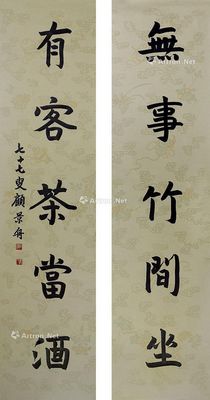 無事竹間坐
有客茶當酒
七十七叟顧景舟
Artron.Net
Artron.Net
Artron.Net
Artron.Net